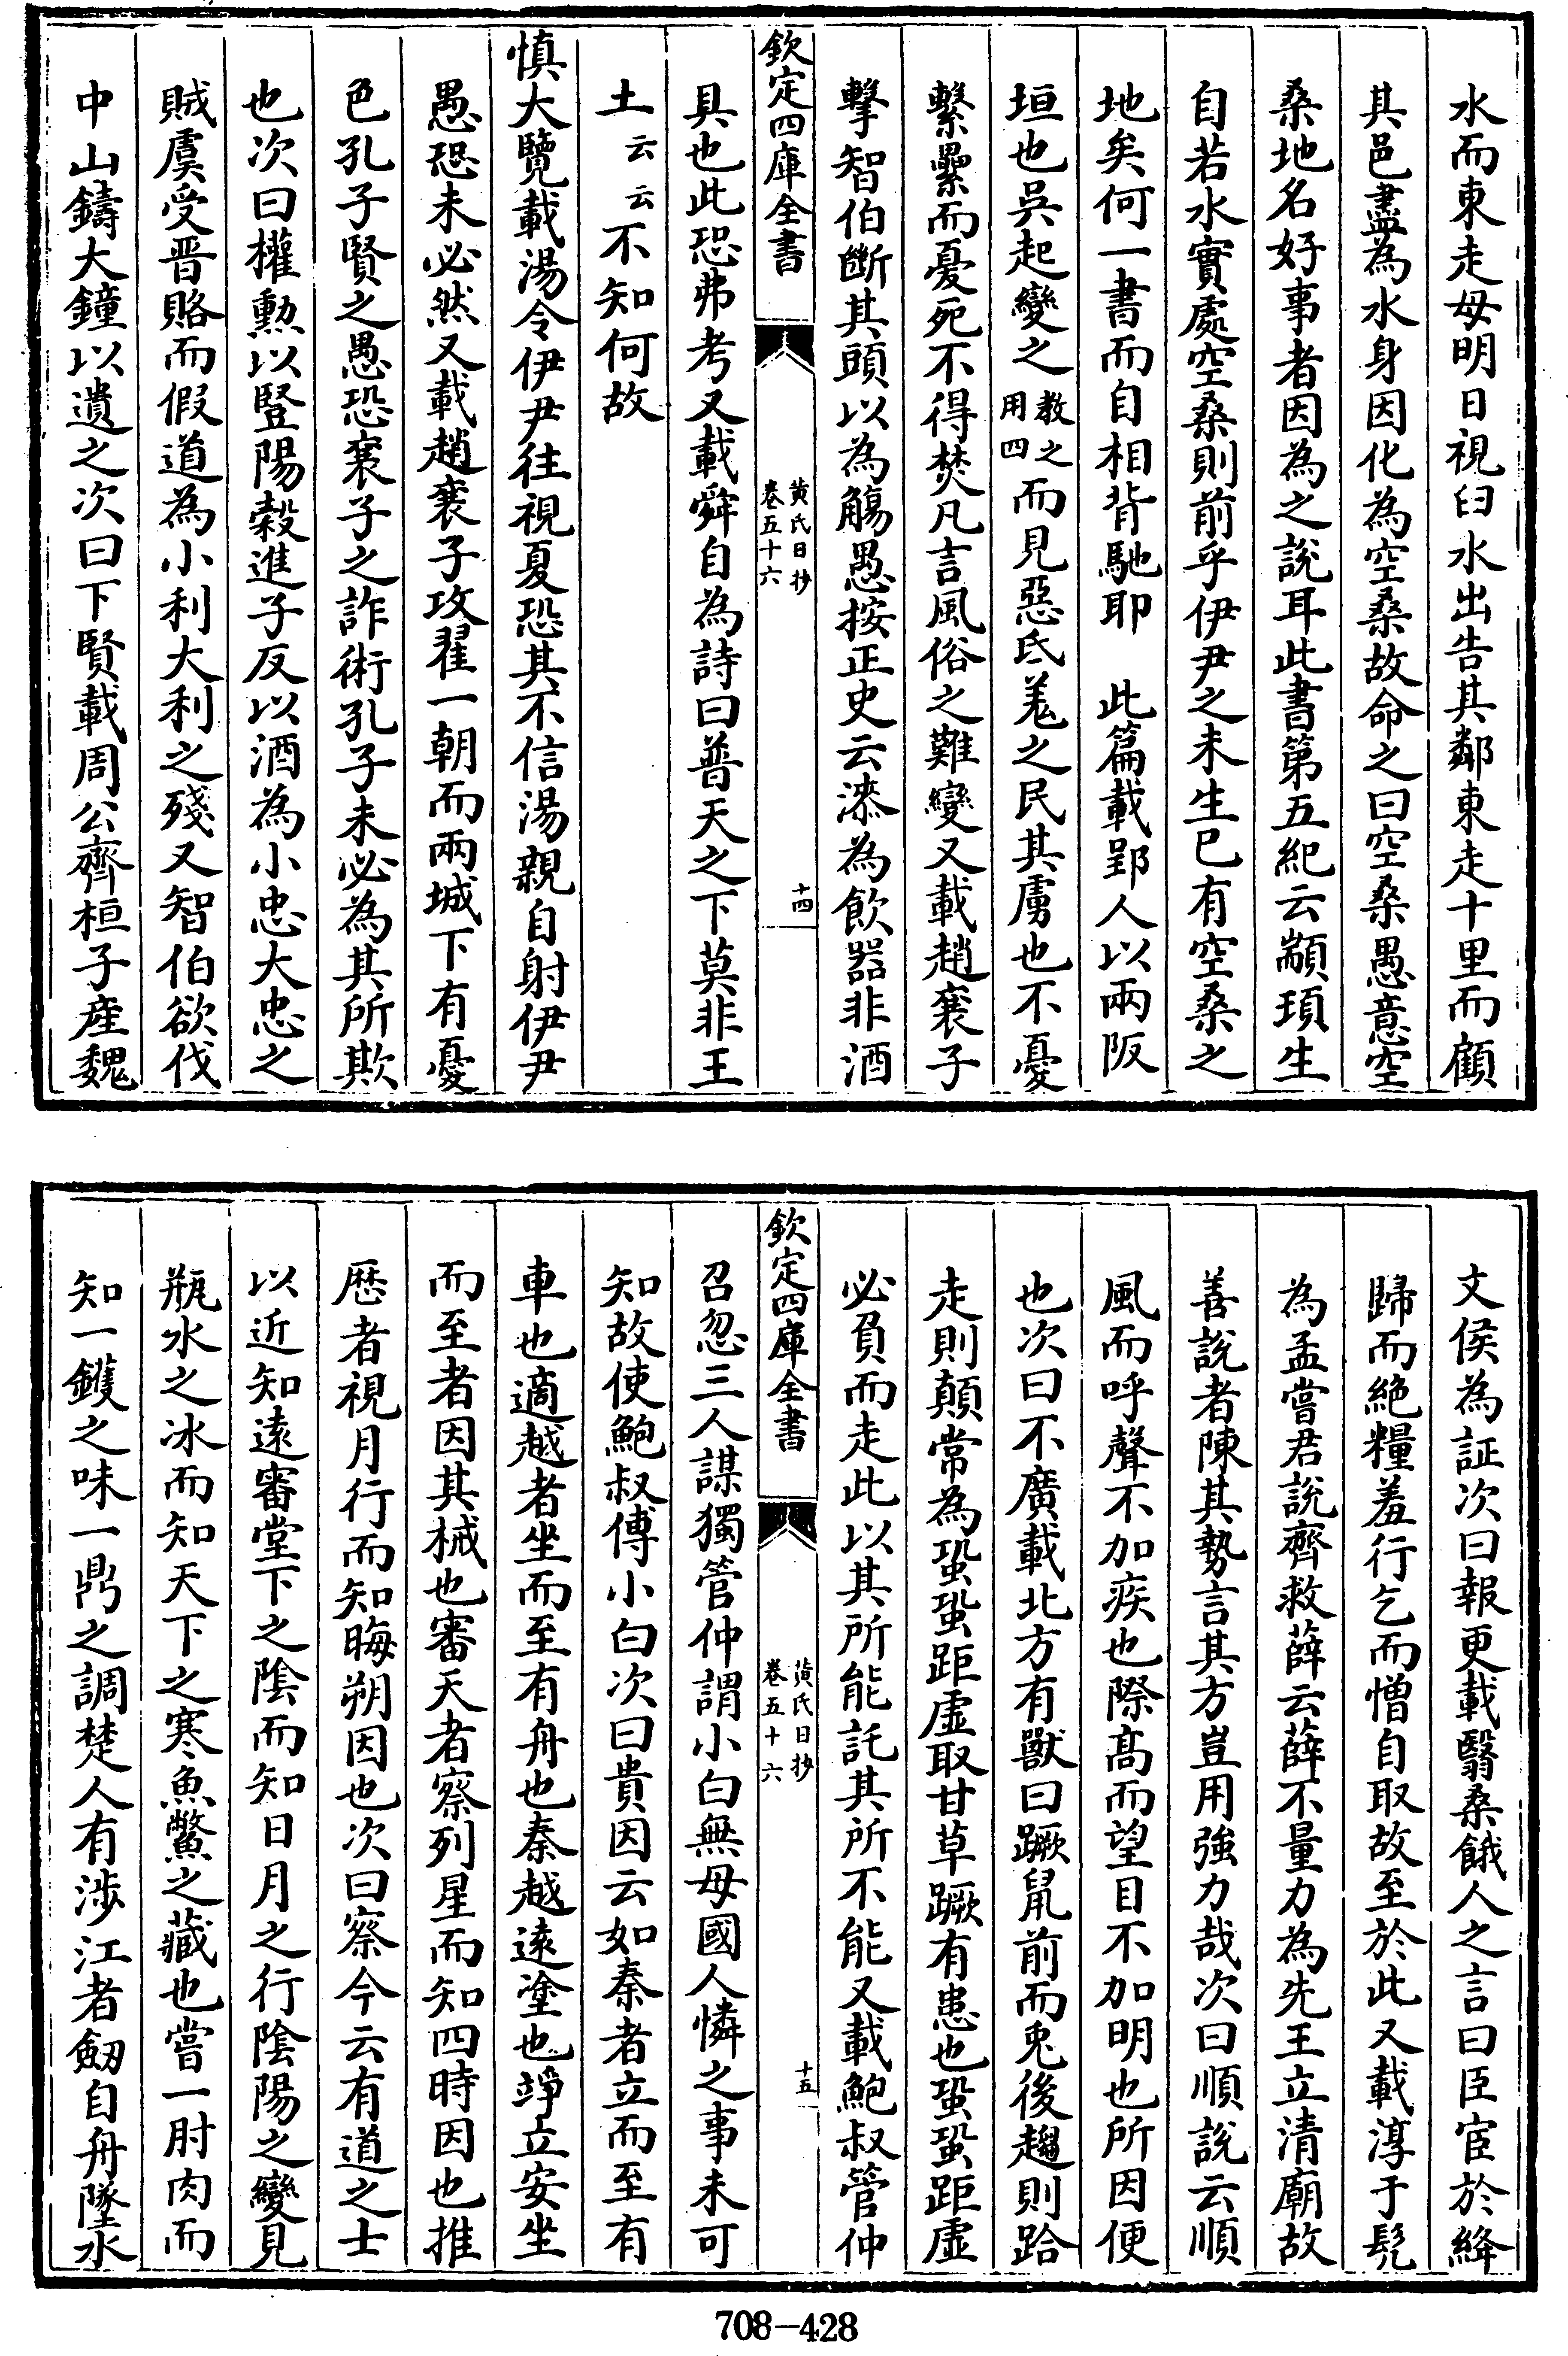 水而東走毋明日視臼水出告其鄰東走十里而顧
其邑盡為水身因化為空桑故命之曰空桑愚意空
桑地名好事者因為之說耳此書第五紀云顓頊生
自若水實處空桑則前乎伊尹之未生已有空桑之
地矣何一書而自相背馳耶　此篇載郢人以兩阪
垣也吳起變之教之用四而見惡氐羌之民其虜也不憂
繫纍而憂死不得焚凡言風俗之難變又載趙襄子
擊智伯斷其頭以為觴愚按正史云漆為飲器非酒
欽定四庫全書
黃氏日抄
卷五十六
十四
具也此恐弗考又載舜自為詩曰普天之下莫非王
土云云不知何故
慎大覽載湯令伊尹往視夏恐其不信湯親自射伊尹
愚恐未必然又載趙襄子攻翟一朝而兩城下有憂
色孔子賢之愚恐襄子之詐術孔子未必為其所欺
也次曰權勳以豎陽穀進子反以酒為小忠大忠之
賊虞受晋賂而假道為小利大利之殘又智伯欲伐
中山鑄大鐘以遺之次曰下賢載周公齊桓子產魏
文侯為証次曰報更載翳桑餓人之言曰臣宦於絳
歸而絕糧羞行乞而憎自取故至於此又載淳于髠
為孟嘗君說齊救薛云薛不量力為先王立清廟故
善說者陳其勢言其方豈用強力哉次曰順說云順
風而呼聲不加疾也際髙而望目不加明也所因便
也次曰不廣載北方有獸曰蹶鼠前而兎後趨則跲
走則顛常為蛩蛩距虛取甘草蹶有患也蛩蛩距虛
必負而走此以其所能託其所不能又載鮑叔管仲
欽定四庫全書
黃氏日抄
卷五十六
十五
召忽三人謀獨管仲謂小白無母國人憐之事未可
知故使鮑叔傅小白次曰貴因云如秦者立而至有
車也適越者坐而至有舟也秦越逺塗也竫立安坐
而至者因其械也審天者察列星而知四時因也推
厯者視月行而知晦朔因也次曰察今云有道之士
以近知逺審堂下之隂而知日月之行隂陽之變見
瓶水之冰而知天下之寒魚鱉之藏也嘗一肘肉而
知一鑊之味一鼎之調楚人有涉江者劒自舟墜水
708-428